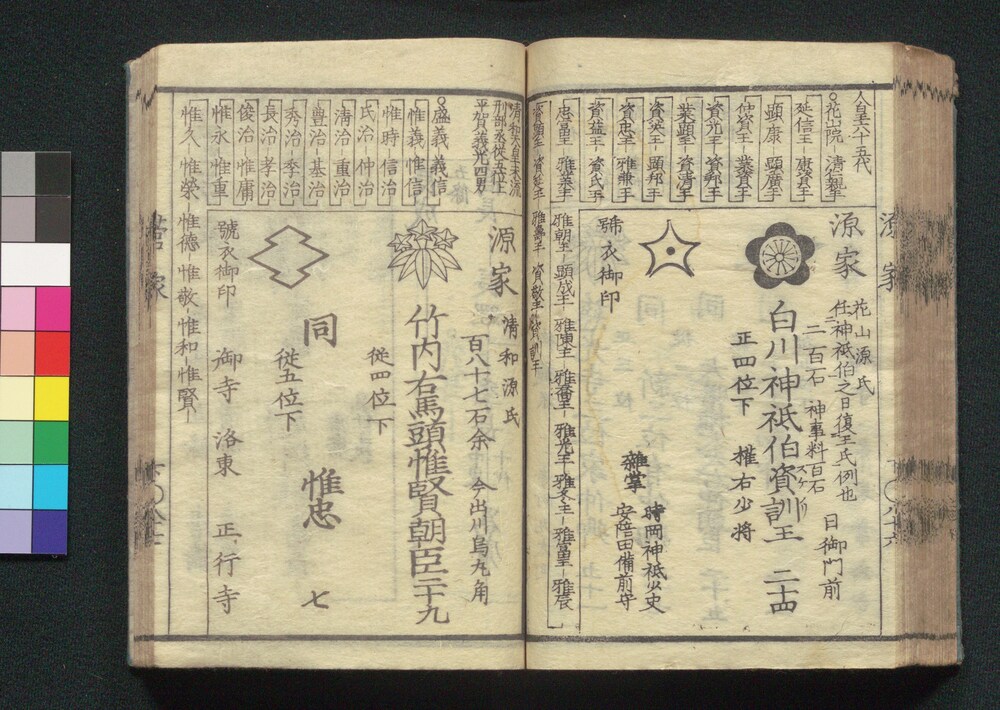 源家
人皇六十五代
花山院 清親王
延信王 康資王
顕康 顕廣王
仲資王 業資王
資光王 資邦王
業顕王 資清王
資英王 顕邦王
資忠王 雅兼王
資益王 資氏王
忠富王 雅業王
資顕王 資延王
雅朝王 顕成王 雅陳王 雅喬王 雅光王 雅冬王 雅富王 雅辰
雅壽王 資敬王 資訓王
源家
花山源氏
任神祇伯之日復王氏例也
二百石 神事料百石 日御門前
白川神祇伯資訓王 二十四
正四位下 權右少将
號衣御印
雜掌
時岡神祇少史
安陪田備前守
清和天皇末流
刑部丞従五位上
平賀義光四男
盛義 義信
惟義 惟信
惟時 信治
氏治 仲治
清治 重治
豊治 基治
秀治 季治
長治 孝治
俊治 惟庸
惟永 惟重
惟久 惟榮 惟徳 惟敬 惟和 惟賢
源家
清和源氏
百八十七石余 今出川烏丸角
竹内右馬頭惟賢朝臣三十九
従四位下
同 惟忠 七
従五位下
號衣御印
御寺 洛東 正行寺